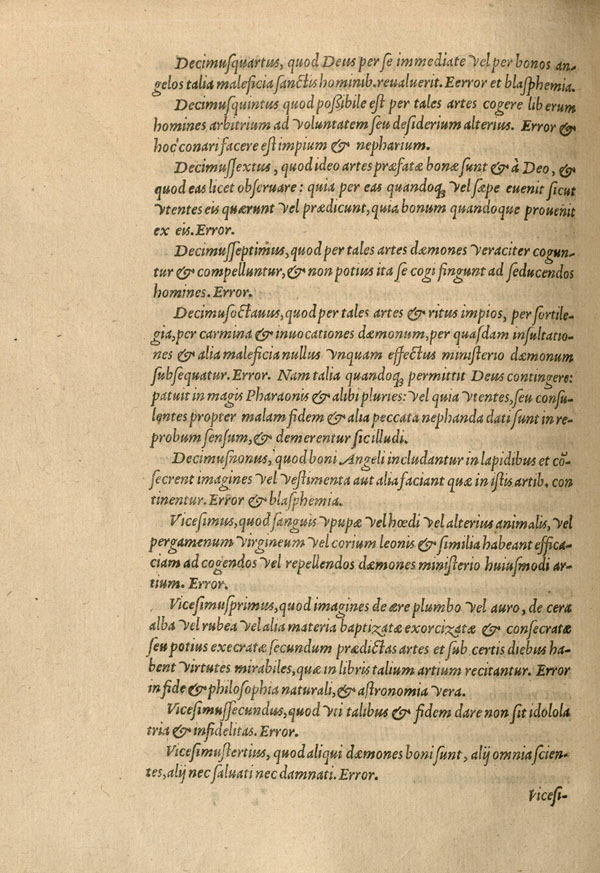 Decimusquartus, quod Deus per se immediate vel per bonos an-
gelos talia maleficia sanctis hominib. reualuerit. Eerror et blasphemia.
Decimusquintus quod possibile est per tales artes cogere liberum
homines arbitrium ad voluntatem seu desiderium alterius. Error &
hoc conari facere est impium & nepharium.
Decimussextus, quod ideo artes præfatæ bonæ sunt & à Deo, &
quod eas licet obseruare: quia per eas quandoq; vel sæpe euenit sicut
vtentes eis quærunt vel prædicunt, quia bonum quandoque prouenit
ex eis. Error.
Decimusseptimus, quod per tales artes dæmones veraciter cogun-
tur & compelluntur, & non potius ita se cogi fingunt ad seducendos
homines. Error.
Decimusoctauus, quod per tales artes & ritus impios, per sortile-
gia, per carmina & inuocationes dæmonum, per quasdam insultatio-
nes & alia maleficia nullus vnquam effectus ministerio dæmonum
subsequatur. Error. Nam talia quandoq; permittit Deus contingere:
patuit in magis Pharaonis & alibi pluries: vel quia vtentes, seu consu-
lentes propter malam fidem & alia peccata nephanda dati sunt in re-
probum sensum, & demerentur sic illudi.
Decimusnonus, quod boni Angeli includantur in lapidibus et cõ-
secrent imagines vel vestimenta aut alia faciant quæ in istis artib. con
tinentur. Error & blasphemia.
Vicesimus, quod sanguis vpupæ vel hœdi vel alterius animalis, vel
pergamenum virgineum vel corium leonis & similia habeant effica-
ciam ad cogendos vel repellendos dæmones ministerio huiusmodi ar-
tium. Error.
Vicesimusprimus, quod imagines de ære plumbo vel auro, de cera
alba vel rubea vel alia materia baptizatæ exorcizatæ & consecratæ
seu potius execratæ secundum prædictas artes et sub certis diebus ha-
bent virtutes mirabiles, quæ in libris talium artium recitantur. Error
in fide & philosophia naturali, & astronomia vera.
Vicesimussecundus, quod vti talibus & fidem dare non sit idolola
tria & infidelitas. Error.
Vicesimustertius, quod aliqui dæmones boni sunt, alij omnia scien-
tes, alij nec saluati nec damnati. Error.
Vicesi-